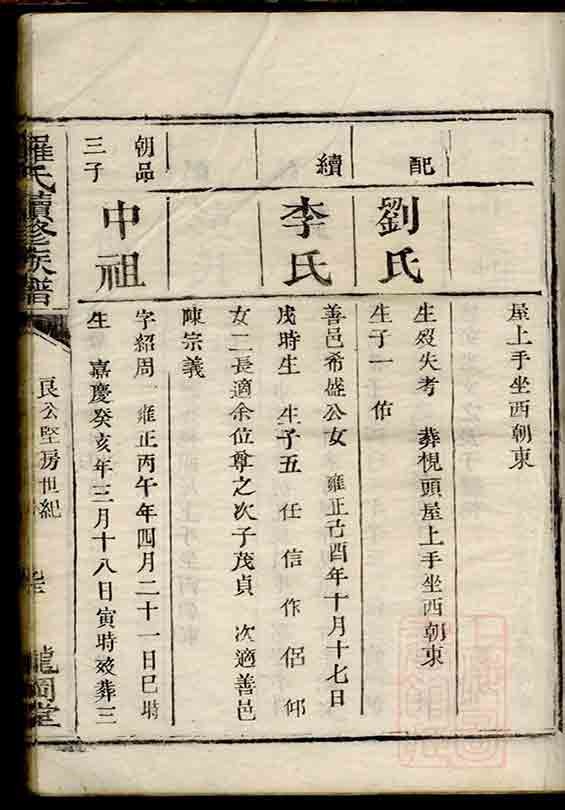 屋上手坐西朝東
配
劉氏
生歿失考 葬梘頭屋上手坐西朝東
生子一 佑
續
李氏
善邑希盛公女 雍正己酉年十月十七日
戌時生 生子五 任 信 作 侶 仰
女二長適余位尊之次子茂貞 次適善邑
陳宗義
朝品
三子
中祖
字紹周 雍正丙午年四月二十一日巳時
生 嘉慶癸亥年三月十八日寅時歿葬三
羅氏續修族譜
良公堅房世紀
龍岡堂